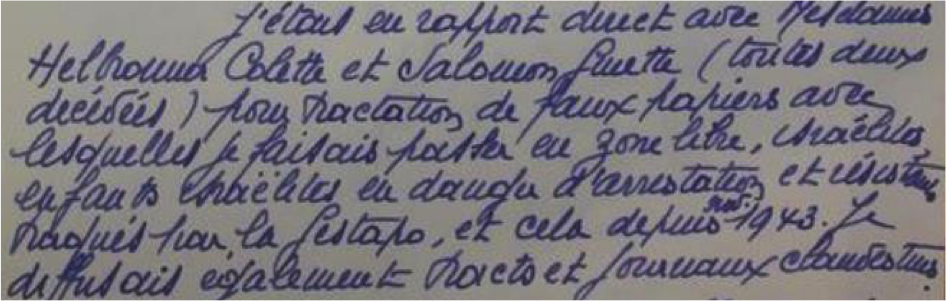 J'étais en rapport direct avec Mesdames
Helbronner Colette et Salomon Ginette (toutes deux
décédées) pour tractation de faux papiers avec
lesquelles je faisais passer en zone libre, israélites,
enfants israëlites en danger d'arrestation et résistants
traqués par la Gestapo, et cela depuis 1943. Je
diffusais également tracts et journaux clandestins.